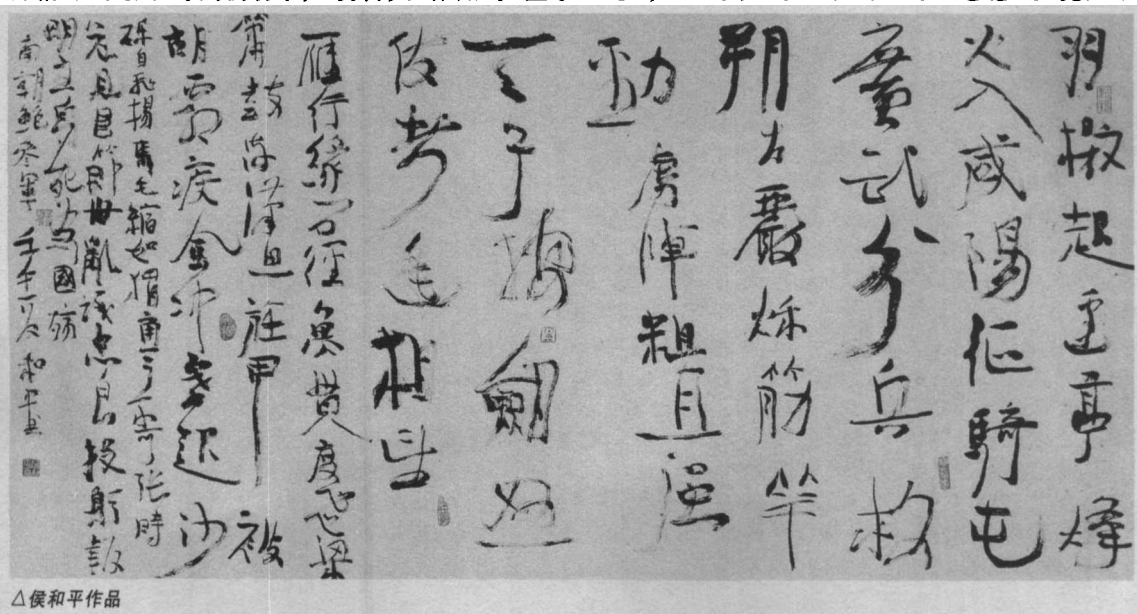 羽檄起邊亭烽
火入咸陽征騎屯
廣武分兵救
朔方嚴秋筋竿
勁虜陣精且强
天子按劍怒
使者遙相望
雁行緣石徑魚貫度飛梁
簫鼓流漢思旌甲被
胡霜疾風沖塞起沙
礫自飛揚馬毛縮如蝟角弓不可張時
危見臣節世亂識忠良投躯報
明主身死為國殤
南朝鮑參軍 壬午 和平書
△侯和平作品